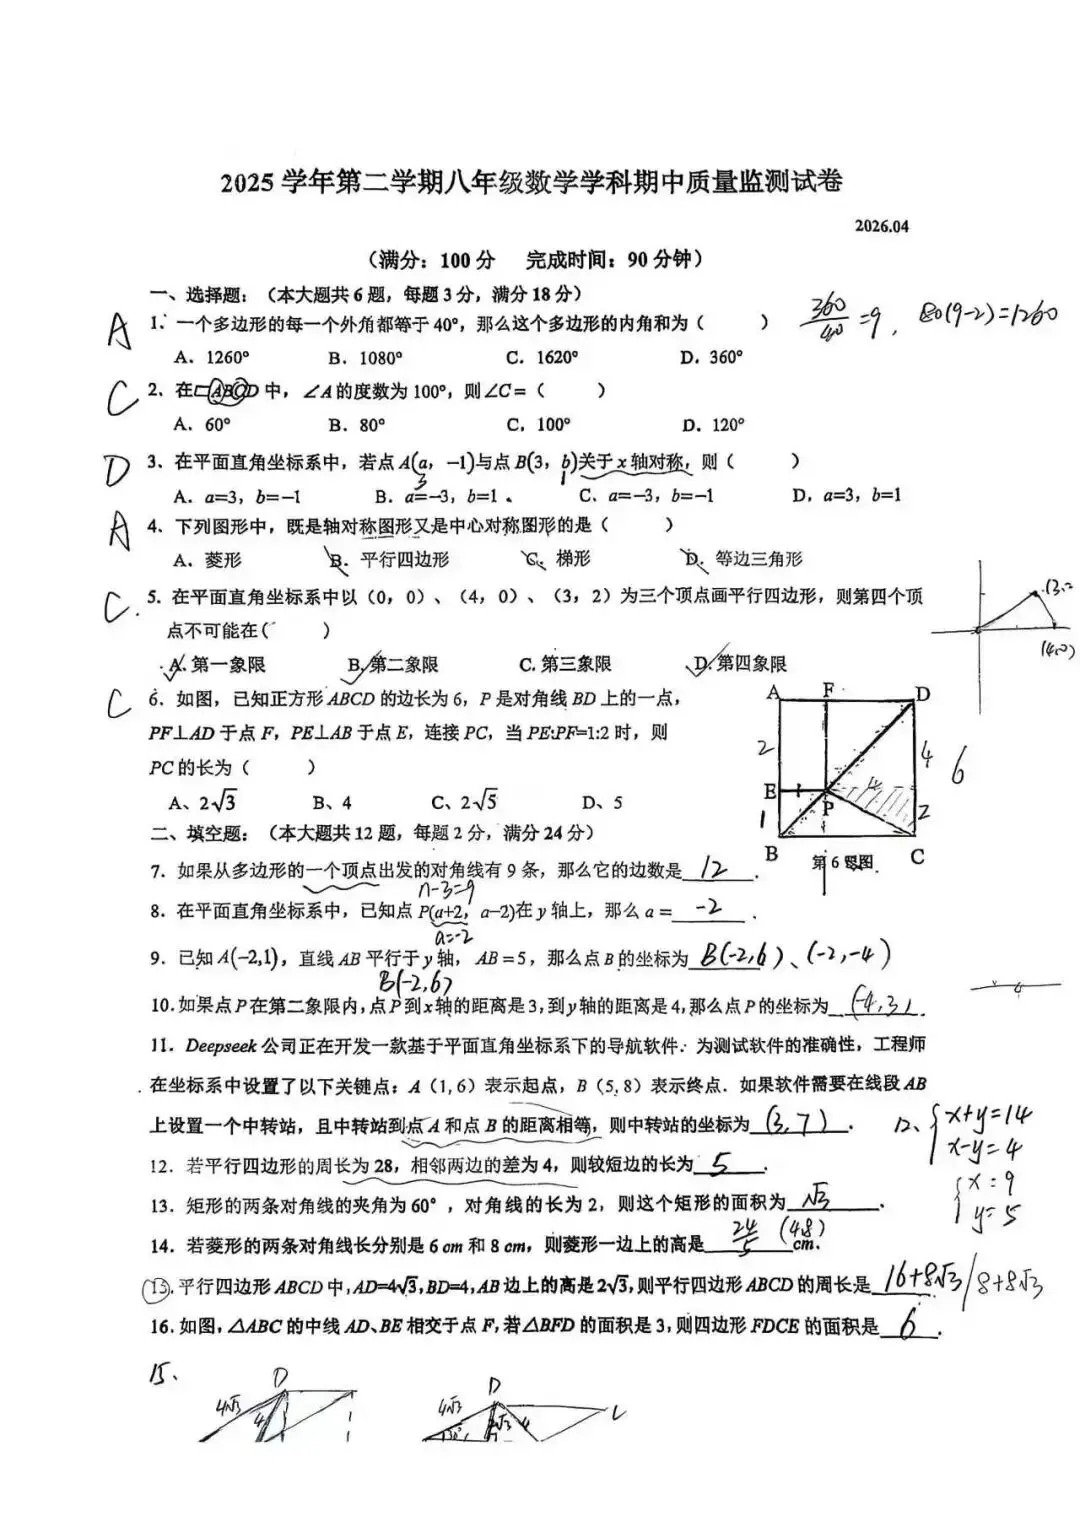 2025 学年第二学期八年级数学学科期中质量监测试卷
2026.04
（满分：100 分 完成时间：90 分钟）
一、选择题：（本大题共 6 题，每题 3 分，满分 18 分）
A 1. 一个多边形的每一个外角都等于 40°，那么这个多边形的内角和为（ ） 360/40 =9, 80(9-2)=1260
A. 1260° B. 1080° C. 1620° D. 360°
C 2. 在▱ABCD 中，∠A 的度数为 100°，则∠C=（ ）
A. 60° B. 80° C. 100° D. 120°
D 3、在平面直角坐标系中，若点 A(a，-1)与点 B(3，b)关于 x 轴对称，则（ ）
3 1
A. a=3，b=-1 B. a=-3，b=1 C. a=-3，b=-1 D. a=3，b=1
A 4、下列图形中，既是轴对称图形又是中心对称图形的是（ ）
A. 菱形 B. 平行四边形 C. 梯形 D. 等边三角形
C. 5. 在平面直角坐标系中以（0，0）、（4，0）、（3，2）为三个顶点画平行四边形，则第四个顶
点不可能在（ ）
(3,2
(4,0)
A. 第一象限 B. 第二象限 C. 第三象限 D. 第四象限
C 6. 如图，已知正方形 ABCD 的边长为 6，P 是对角线 BD 上的一点，
PF⊥AD 于点 F，PE⊥AB 于点 E，连接 PC，当 PE:PF=1:2 时，则
PC 的长为（ ）
A、2√3 B、4 C、2√5 D、5
A F D
2 4 6
E 1 4
P 2
1
B 第 6 题图 C
二、填空题：（本大题共 12 题，每题 2 分，满分 24 分）
7. 如果从多边形的一个顶点出发的对角线有 9 条，那么它的边数是 12 .
n-3=9
8. 在平面直角坐标系中，已知点 P(a+2，a-2)在 y 轴上，那么 a = -2 .
a=-2
9. 已知 A(-2,1)，直线 AB 平行于 y 轴，AB = 5，那么点 B 的坐标为 B(-2,6)、(-2,-4)
B(-2,6)
4
10. 如果点 P 在第二象限内，点 P 到 x 轴的距离是 3，到 y 轴的距离是 4，那么点 P 的坐标为 (-4,3) .
11. Deepseek 公司正在开发一款基于平面直角坐标系下的导航软件. 为测试软件的准确性，工程师
在坐标系中设置了以下关键点：A（1,6）表示起点，B（5,8）表示终点. 如果软件需要在线段 AB
上设置一个中转站，且中转站到点 A 和点 B 的距离相等，则中转站的坐标为 (3,7) .
12、{x+y=14
x-y=4
{x=9
y=5
12. 若平行四边形的周长为 28，相邻两边的差为 4，则较短边的长为 5 .
13. 矩形的两条对角线的夹角为 60°，对角线的长为 2，则这个矩形的面积为 √3 .
14. 若菱形的两条对角线长分别是 6 cm 和 8 cm，则菱形一边上的高是 24/5 (4.8) cm.
15. 平行四边形 ABCD 中，AD=4√3，BD=4，AB 边上的高是 2√3，则平行四边形 ABCD 的周长是 16+8√3/8+8√3
16. 如图，△ABC 的中线 AD、BE 相交于点 F，若△BFD 的面积是 3，则四边形 FDCE 的面积是 6 .
15、
D
4√3 4
D
4√3 2√3 4
30°